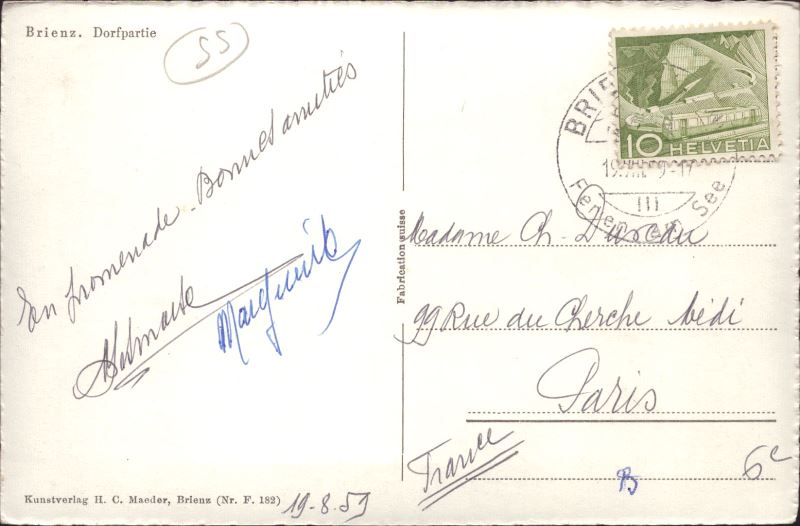 Brienz. Dorfpartie
55
En promenade. Bonnes amitiés
Marguerite
Kunstverlag H. C. Maeder, Brienz (Nr. F. 182)
19-8-59
Fabrication suisse
10 HELVETIA
BRIE
19.VIII. 9-17
III
Ferien am See
Madame Ch. Dureau
99 Rue du Cherche Midi
Paris
France
B
6e